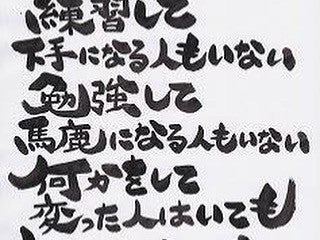 練習して
下手になる人もいない
勉強して
馬鹿になる人もいない
何かをして
変った人はいても